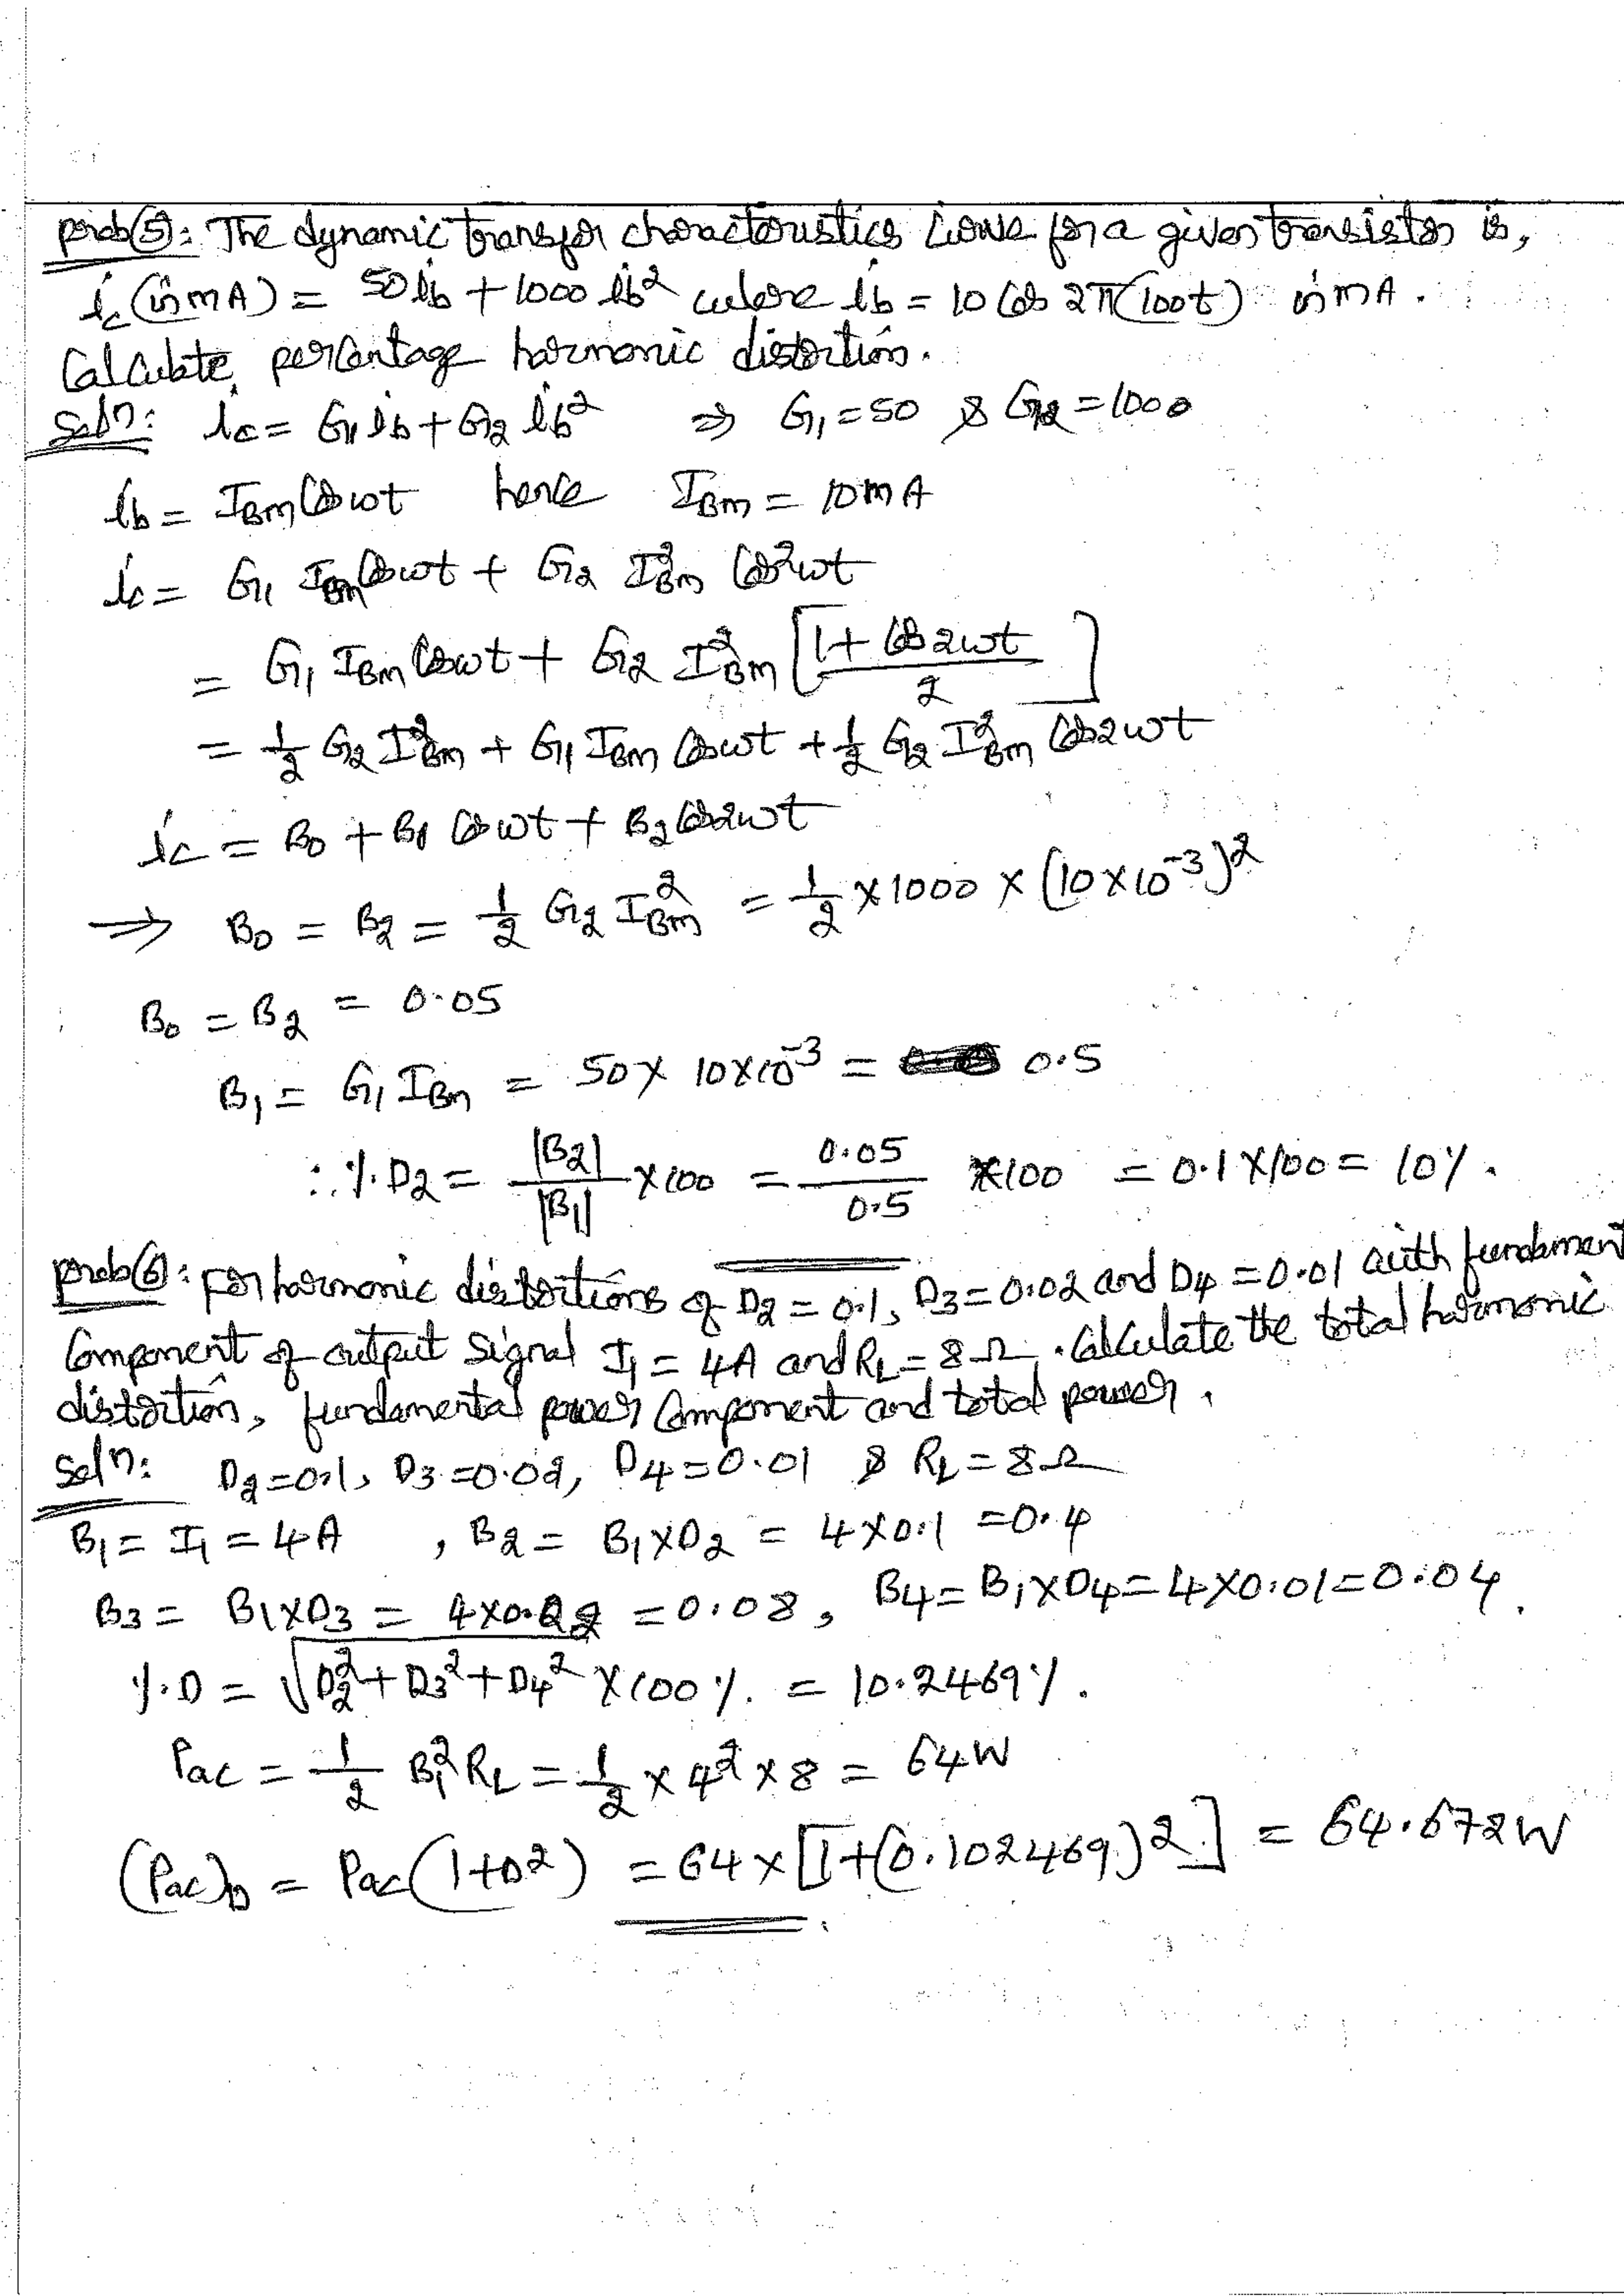 prob(5): The dynamic transfer characteristics curve for a given transistor is,
ic (in mA) = 50 ib + 1000 ib² where ib = 10 Cos 2π(100t) in mA.
Calculate percentage harmonic distortion.
Soln: ic = G1 ib + G2 ib² ⇒ G1 = 50 & G2 = 1000
ib = IBm Cos ωt hence IBm = 10 mA
ic = G1 IBm Cos ωt + G2 I²Bm Cos² ωt
= G1 IBm Cos ωt + G2 I²Bm [(1 + Cos 2ωt)/2]
= 1/2 G2 I²Bm + G1 IBm Cos ωt + 1/2 G2 I²Bm Cos 2ωt
ic = B0 + B1 Cos ωt + B2 Cos 2ωt
⇒ B0 = B2 = 1/2 G2 I²Bm = 1/2 × 1000 × (10×10⁻³)²
B0 = B2 = 0.05
B1 = G1 IBm = 50 × 10×10⁻³ = 0.5
∴ % D2 = |B2|/|B1| × 100 = 0.05/0.5 × 100 = 0.1 × 100 = 10%.
prob(6): For harmonic distortions of D2 = 0.1, D3 = 0.02 and D4 = 0.01 with fundament
Component of output signal I1 = 4A and RL = 8Ω. Calculate the total harmonic
distortion, fundamental power Component and total power.
Soln: D2 = 0.1, D3 = 0.02, D4 = 0.01 & RL = 8Ω
B1 = I1 = 4A, B2 = B1×D2 = 4×0.1 = 0.4
B3 = B1×D3 = 4×0.02 = 0.08, B4 = B1×D4 = 4×0.01 = 0.04.
% D = √(D2² + D3² + D4²) × 100% = 10.2469%.
Pac = 1/2 B1² RL = 1/2 × 4² × 8 = 64W
(Pac)D = Pac(1+D²) = 64 × [1+(0.102469)²] = 64.672W